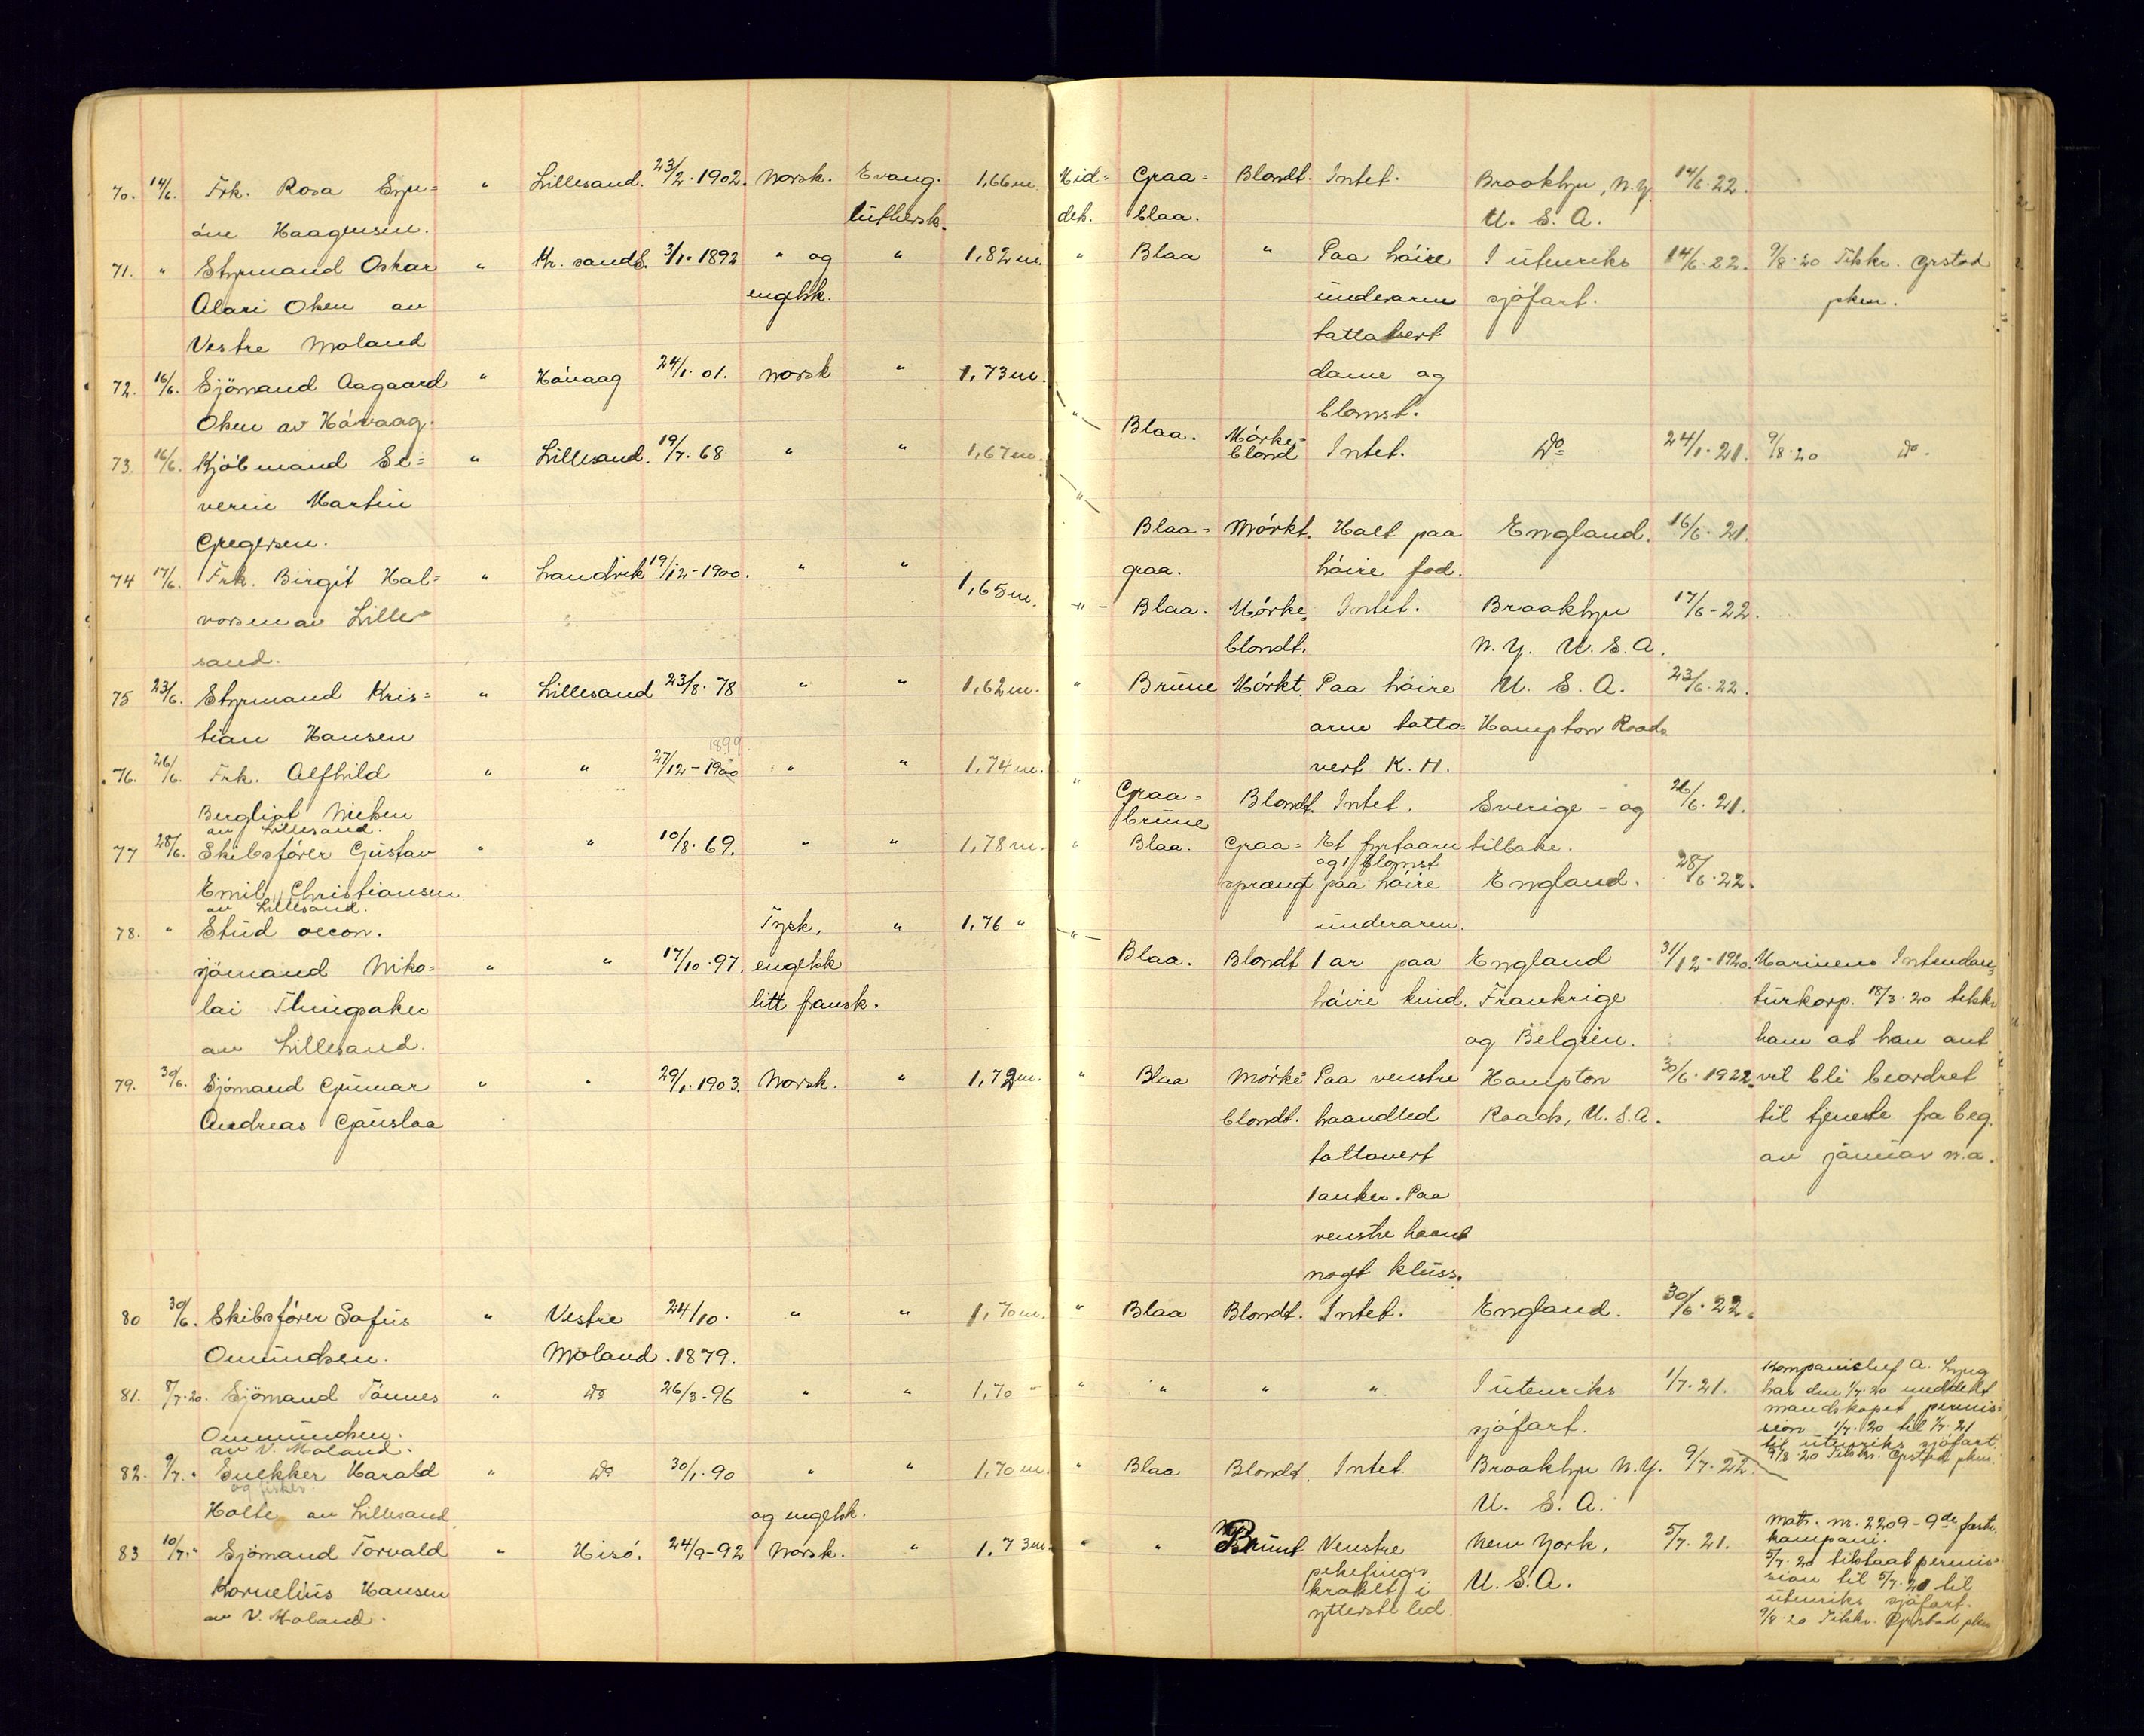 70. 14/6. Frk. Rosa Syn= " Lillesand. 23/2. 1902. Norsk. Evang. 1,66 m.
öve Haagensen. luthersk.
71. " Styrmand Oskar " Kr. sandS. 3/1. 1892 " og " 1,82 m.
Alari Olsen av engelsk.
Vestre Moland
72. 16/6. Sjömand Aagaard " Hövaag 24/1. 01. norsk " 1,73 m.
Olsen av Hövaag.
73. 16/6. Kjöbmand Se= " Lillesand. 19/7. 68 " " 1,67 m.
verin Martin
Gregersen.
74 17/6. Frk. Birgit Hal= " Landvik 19/12-1900. " " 1,65 m.
vorsen av Lille=
sand.
75 23/6. Styrmand Kris= " Lillesand 23/8. 78 " " 1,62 m.
tian Hansen
1899.
76. 26/6. Frk. Alfhild " " 27/12-1900 " " 1,74 m.
Bergliot Nielsen
av Lillesand.
77 28/6. Skibsförer Gustav " " 10/8. 69. " " 1,78 m.
Emil Christiansen
av Lillesand.
78. " Stud oecon. Tysk, " 1,76 "
sjömand Niko= " " 17/10. 97. engelsk
lai Tingsaker litt fransk.
av Lillesand.
79. 30/6. Sjömand Gunnar " " 29/1. 1903. Norsk. " 1,72 m.
Andreas Gauslaa
80 30/6. Skibsförer Sofus " Vestre 24/10. " " 1,70 m.
Omundsen. Moland. 1879.
81. 8/7.20. Sjömand Tönnes " Do 26/3-96 " " 1,70 "
Ommundsen.
av V. Moland.
82. 9/7. " Snekker Harald " Do 30/1. 90 " " 1,70 m.
og fisker
Holte av Lillesand. og engelsk.
83 10/7. " Sjömand Torvald " Hisö. 24/9-92 Norsk. " 1,73 m.
Kornelius Hansen
av V. Moland.
Mid= Graa= Blondt. Intet. Brooklyn, N.Y. 14/6. 22.
dels. blaa. U. S. A.
" Blaa " Paa höire I utenriks 14/6. 22. 9/8. 20 Tilskr. Grstad
underarm sjöfart. pkm.
tattovert
dame og
blomst.
" Blaa. Mörke= Intet. Do 24/1. 21. 9/8. 20 Do.
blond
" Blaa= Mörkt. Halt paa England. 16/6. 21.
graa. höire fod.
" Blaa. Mörke= Intet. Brooklyn 17/6-22.
blondt. N. Y. U. S. A.
" Brune Mörkt. Paa höire U. S. A. 23/6. 22.
arm tatto= Hampton Roads
vert K. H.
" Graa= Blondt. Intet. Sverige - og 26/6. 21.
brune
" Blaa. Graa= Et fyrtaarn tilbake.
og 1 blomst
sprængt paa höire England. 28/6. 22.
underarm.
" Blaa. Blondt 1 ar paa England 31/12-1920. Marinens Intendan=
höire kind. Frankrige turkorp. 18/3. 20 tilskr.
og Belgien. ham at han ant
" Blaa Mörke= Paa venstre Hampton 30/6. 1922. vil bli beordret
blondt. haandled Roads, U. S. A. til tjeneste fra beg.
tattovert av januar n.a.
1 anker. Paa
venstre haand
noget kluss.
" Blaa Blondt. Intet. England. 30/6. 22.
Kompanichef A. Lyng
" " " " I utenriks 1/7. 21. har den 1/7. 20 meddelt
mandskapet permis=
sjöfart. sion 1/7. 20 til 1/7. 21
til utenriks sjöfart.
9/8 20 Tilskr. Grstad pkm.
" Blaa Blondt. Intet. Brooklyn N.Y. 9/7. 22.
U. S. A.
Matr. nr. 2209 - 9de feste.
" " Brunt Venstre New York, 5/7. 21. kompani.
pekefinger 5/7. 20 tilstaat permis=
kroket i U. S. A. sion til 5/7. 21 til
ytterste led. utenriks sjöfart.
9/8. 20 Tilskr. Grstad pkm